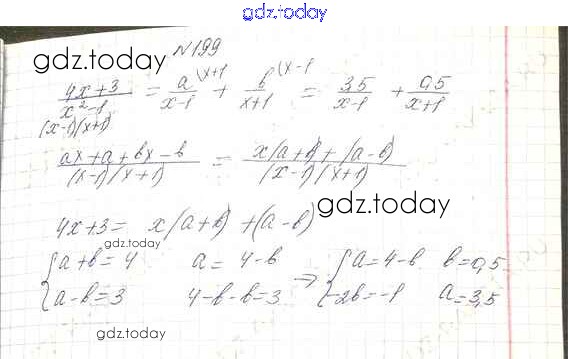 gdz.today
№199
gdz.today
(4x+3)/(x²-1) = a/(x-1) \x+1 + b/(x+1) (x-1 = 3,5/(x-1) + 0,5/(x+1)
(x-1)(x+1)
(ax+a+bx-b)/((x-1)(x+1)) = (x(a+b)+(a-b))/((x-1)(x+1))
4x+3= x(a+b)+(a-b)
gdz.today
gdz.today
{a+b=4 a=4-b ⇒ {a=4-b b=0,5
{a-b=3 4-b-b=3 {-2b=-1 a=3,5
gdz.today